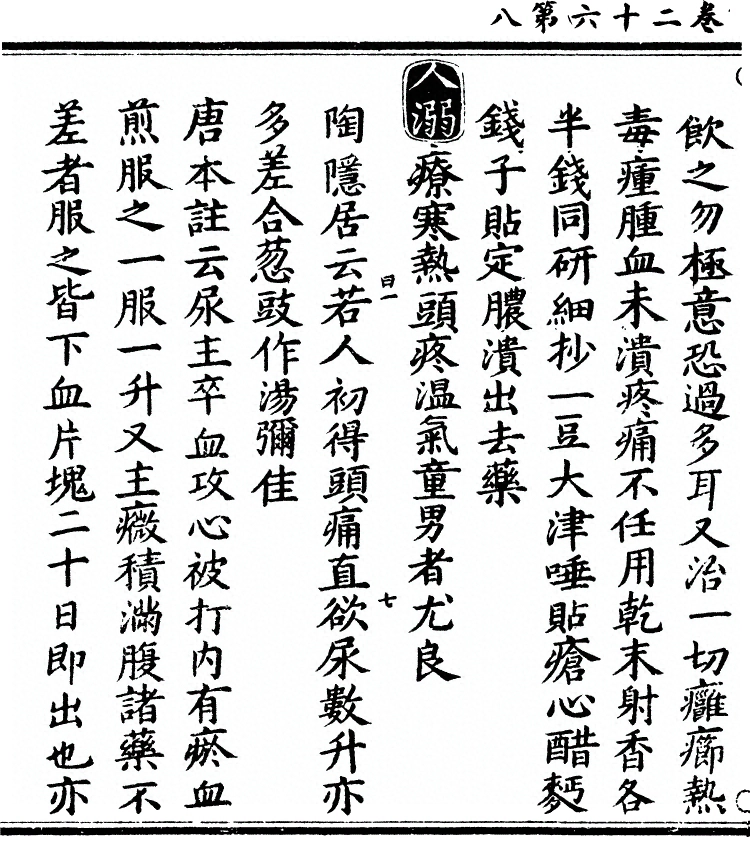 卷二十六第八
飲之勿極意恐過多耳又治一切癰癤熱
毒瘇腫血未潰疼痛不任用乾末射香各
半錢同研細抄一豆大津唾貼瘡心醋麪
錢子貼定膿潰出去藥
人溺療寒熱頭疼温氣童男者尤良
陶隱居云若人初得頭痛直欲尿數升亦
多差合葱豉作湯彌佳
唐本註云尿主卒血攻心被打内有瘀血
煎服之一服一升又主癥積滿腹諸藥不
差者服之皆下血片塊二十日即出也亦
曰一
七